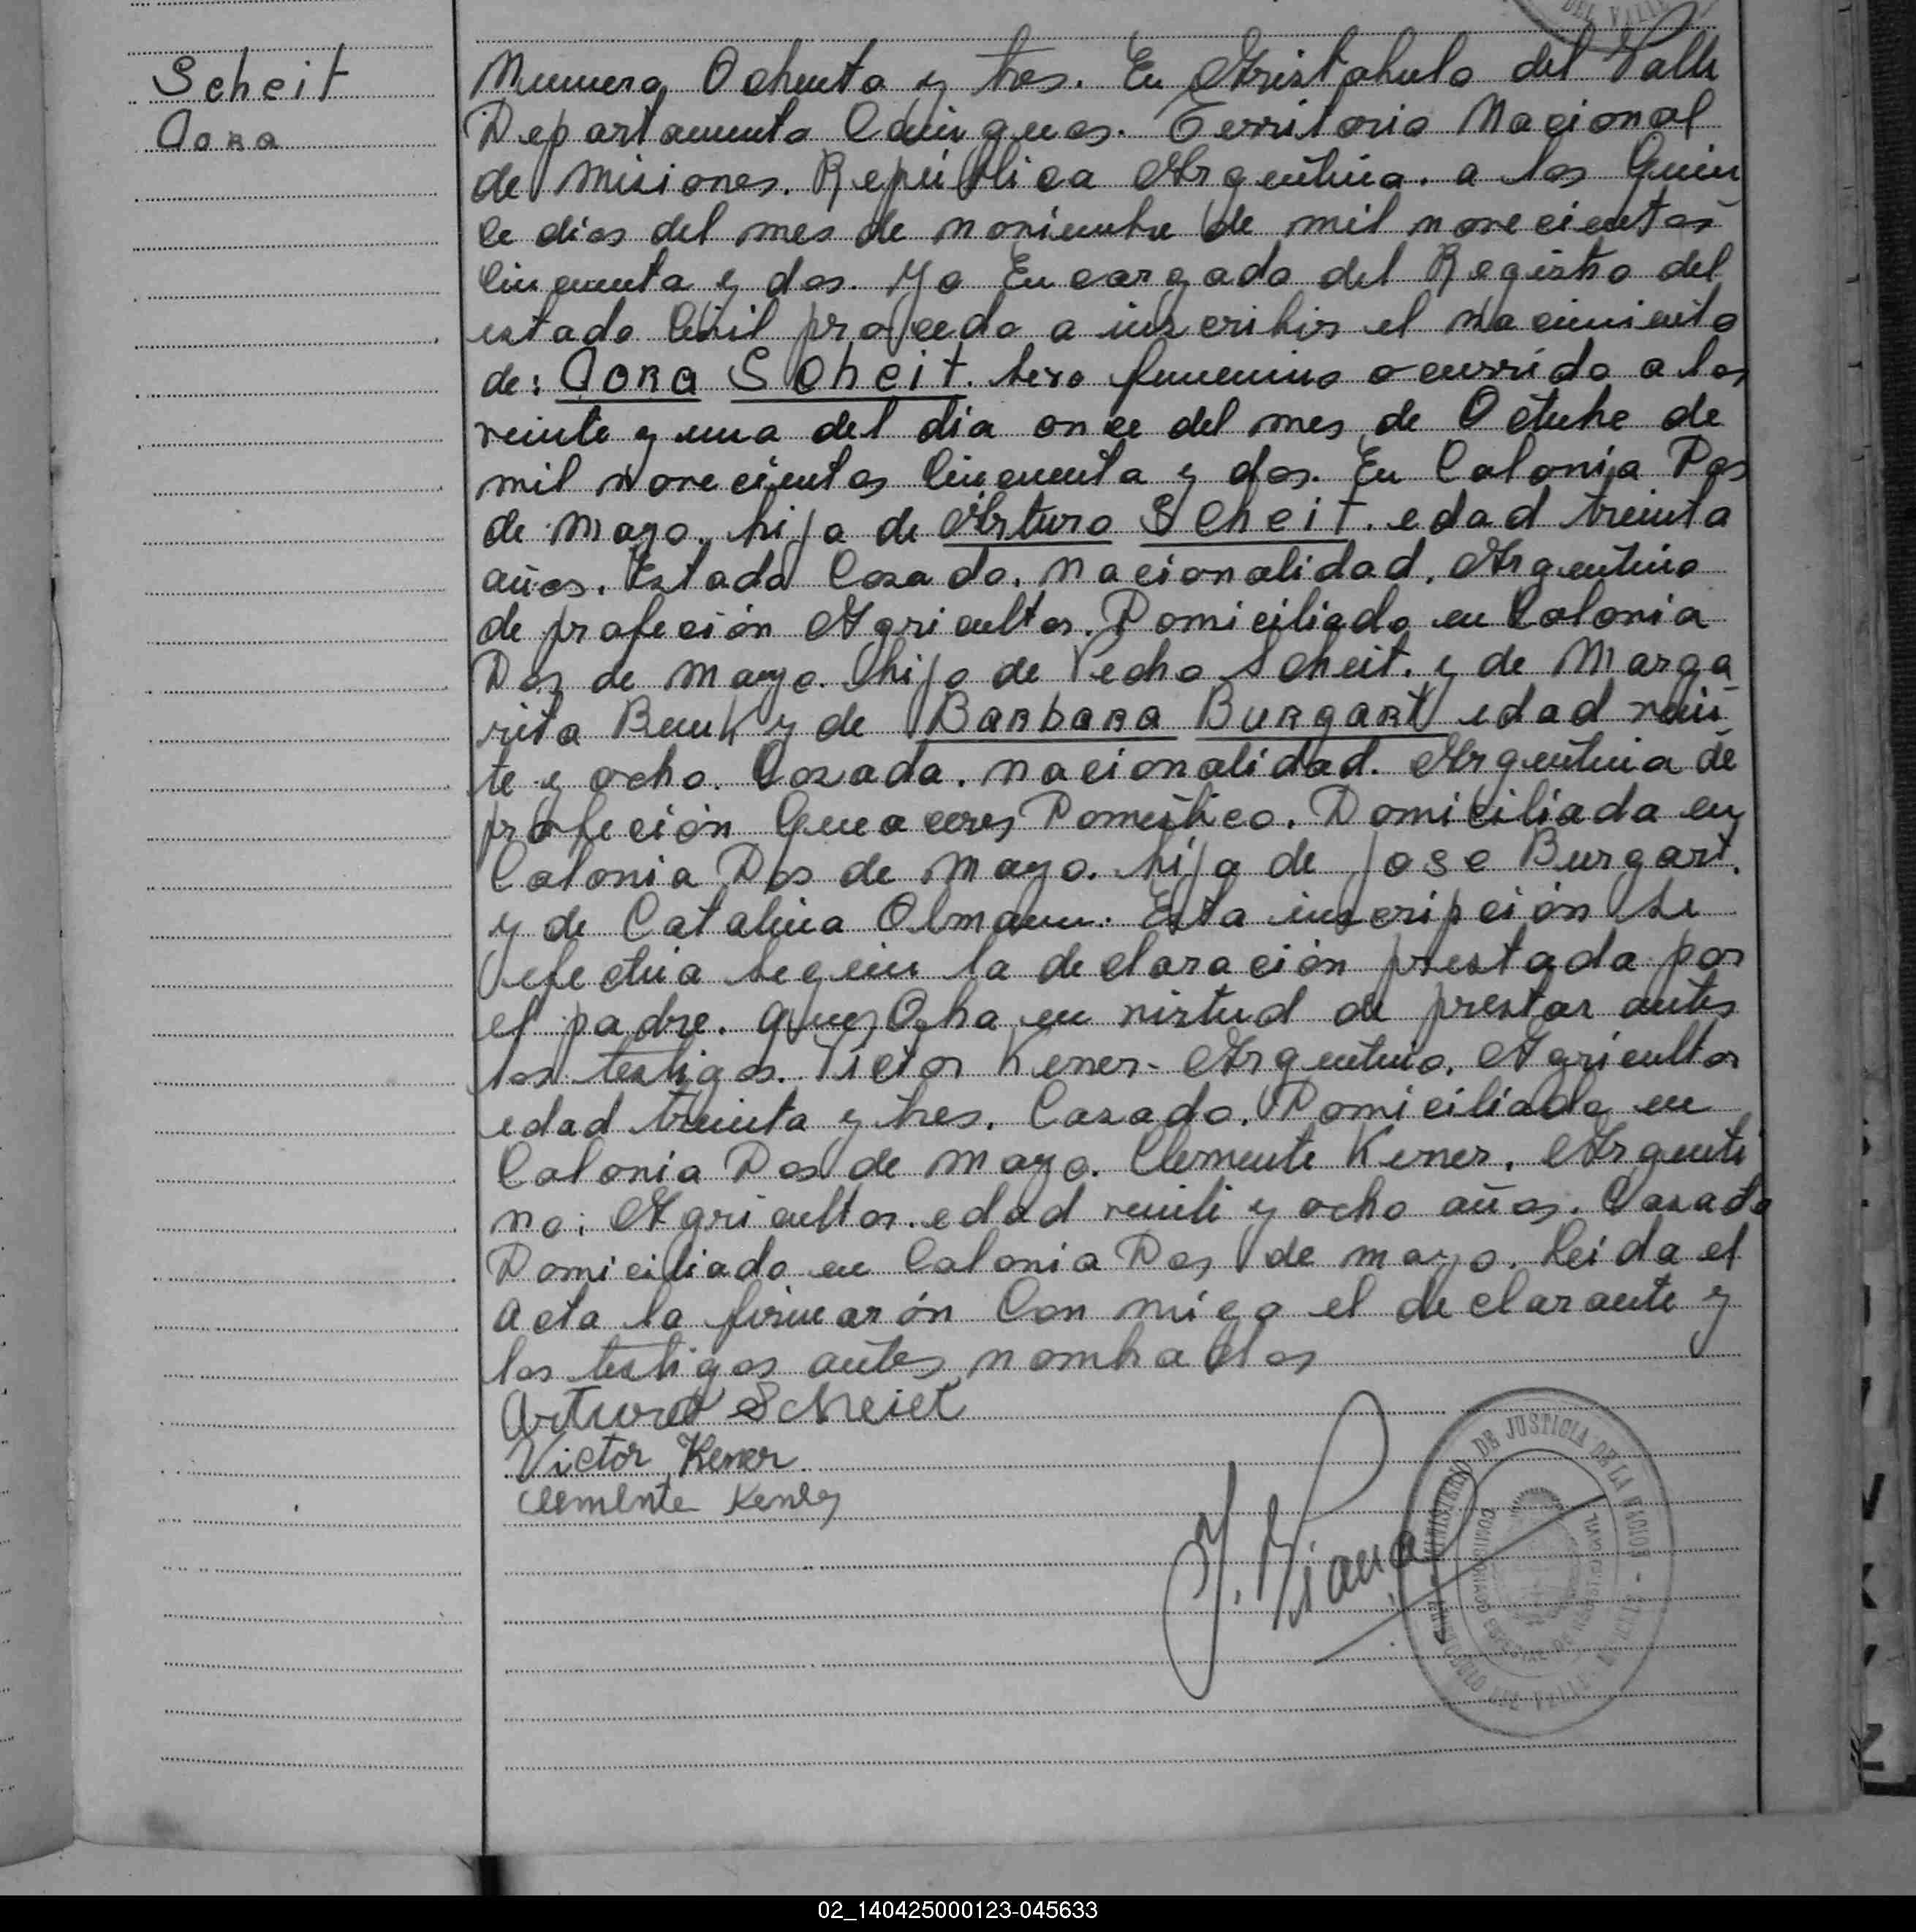 DEL VALLE
Scheit
Dora
Numero Ochenta y tres. En Aristobulo del Valle
Departamento Cainguas. Territorio Nacional
de Misiones. República Argentina. a los Quin
ce dias del mes de noviembre de mil novecientos
Cincuenta y dos. Yo Encargado del Registro del
estado Civil procedo a inscribir el nacimiento
de: Dora Scheit. Sexo femenino ocurrido a las
veinte y una del dia once del mes de Octubre de
mil novecientos Cincuenta y dos. En Colonia Dos
de Mayo. hija de Arturo Scheit. edad treinta
años. Estado Casado. Nacionalidad. Argentino
de profeción Agricultor. Domiciliado en Colonia
Dos de Mayo. hijo de Pedro Scheit. y de Marga
rita Beuk y de Barbara Burgart edad vein
te y ocho. Casada. nacionalidad. Argentina de
profeción Queaceres Domestico. Domiciliada en
Colonia Dos de Mayo. hija de Jose Burgart.
y de Catalina Olmann. Esta inscripción se
efectua según la declaración prestada por
el padre. en virtud de prestar antes
los testigos. Victor Kener- Argentino. Agricultor
edad treinta y tres. Casado. Domiciliado en
Colonia Dos de Mayo. Clemente Kener. Argenti
no. Agricultor. edad veinte y ocho años. Casado
Domiciliado en Colonia Dos de Mayo. Leida el
Acta la firmarón Con migo el declarante y
los testigos antes nombrados
Arturo Scheiet
Victor Kener
Clemente Kener
MINISTERIO DE JUSTICIA DE LA NACION
02_140425000123-045633